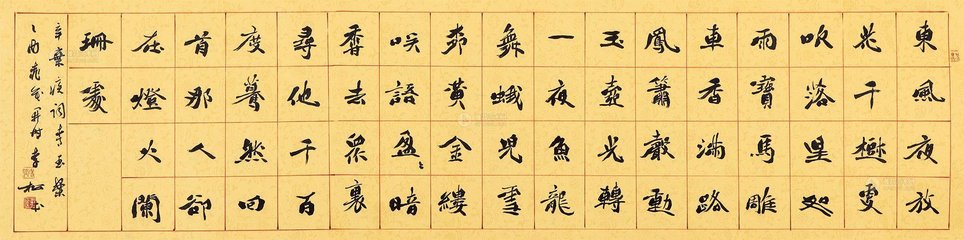 東風夜放
花千樹更
吹落星如
雨寶馬雕
車香滿路
鳳簫聲動
玉壺光轉
一夜魚龍
舞蛾兒雪
柳黃金縷
咲語盈〻暗
香去眾裏
尋他千百
度驀然回
首那人卻
在燈火闌
珊處
辛棄疾詞青玉案
李松